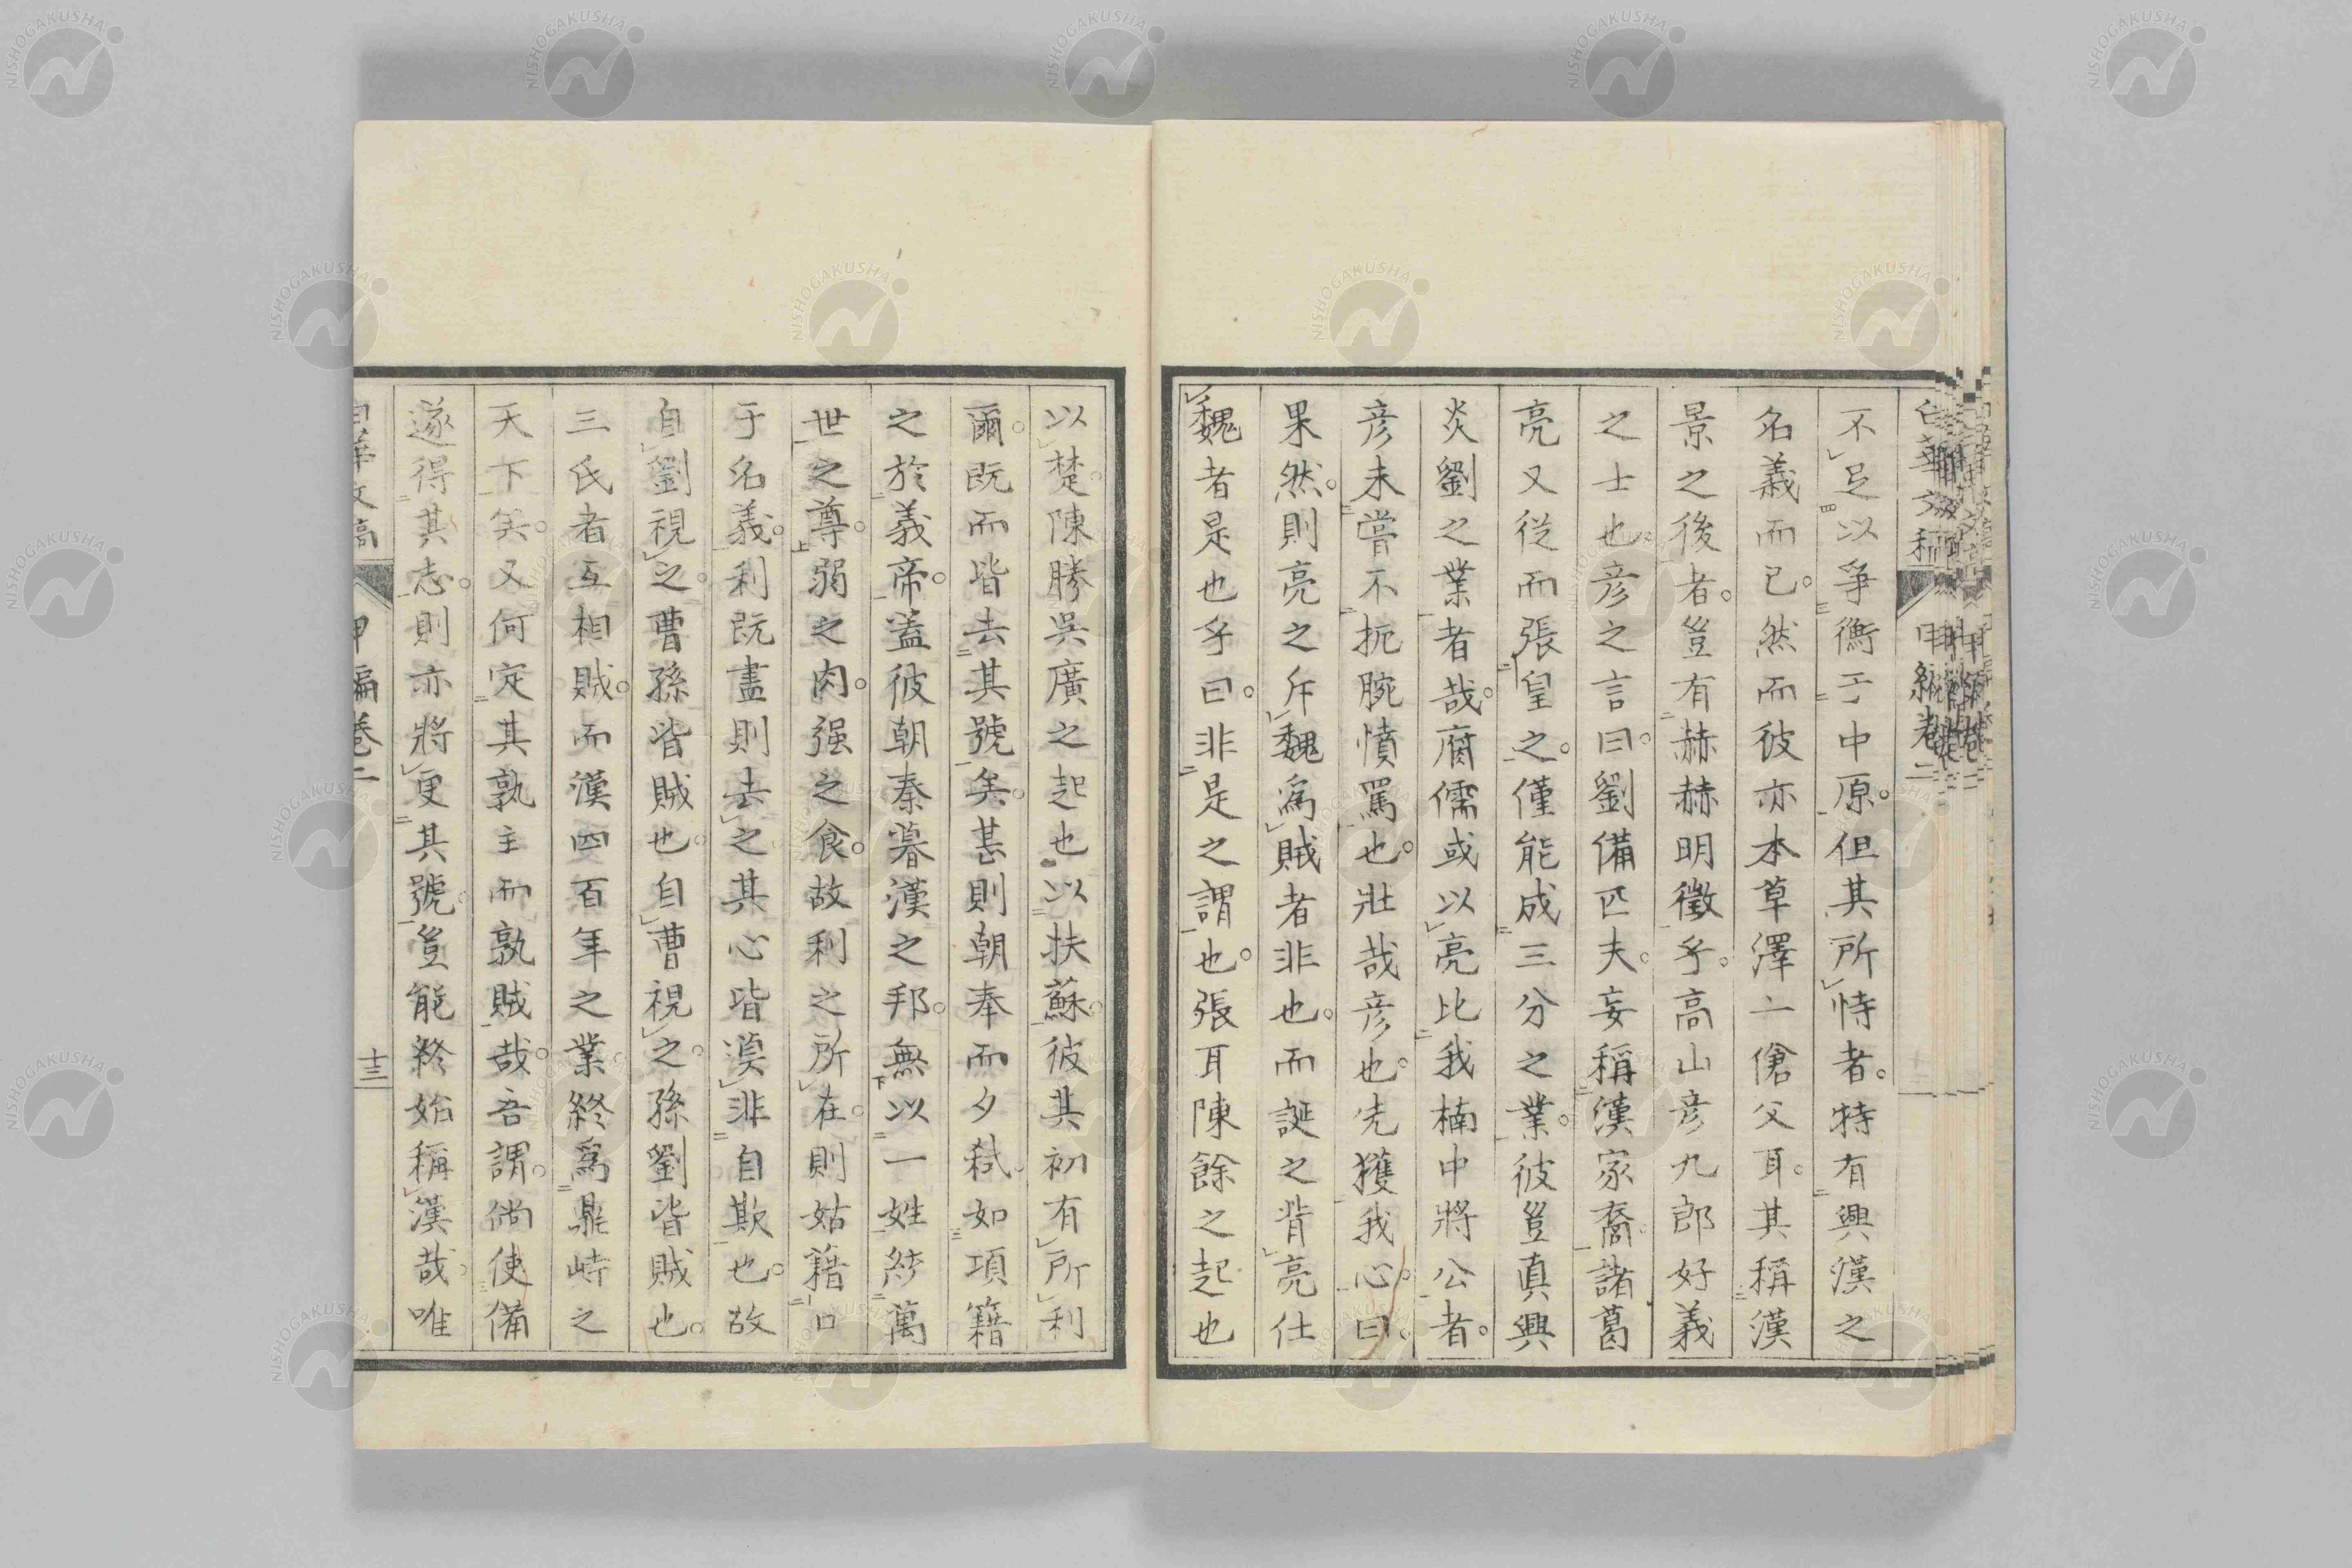 不足以爭衡于中原。但其所恃者。特有興漢之
名義而已。然而彼亦本草澤一傖父耳。其稱漢
景之後者。豈有赫赫明徵乎。高山彦九郎好義
之士也彦之言曰。劉備匹夫。妄稱漢家裔。諸葛
亮又從而張皇之。僅能成三分之業。彼豈真興
炎劉之業者哉。腐儒或以亮比我楠中將公者。
彦未嘗不扼腕憤罵也。壯哉彦也。先獲我心。曰。
果然。則亮之斥魏爲賊者非也。而誕之背亮仕
魏者是也乎曰。非是之謂也。張耳陳餘之起也
以楚。陳勝吳廣之起也以扶蘇。彼其初有所利
爾。既而皆去其號矣。甚則朝奉而夕弑。如項籍
之於義帝。蓋彼朝秦暮漢之邦。無以一姓統萬
世之尊。弱之肉。强之食。故利之所在。則姑籍口
于名義。利既盡則去之其心皆漠非自欺也。故
自劉視之。曹孫皆賊也。自曹視之。孫劉皆賊也。
三氏者互相賊。而漢四百年之業終爲鼎峙之
天下矣。又何定其孰主而孰賊哉。吾謂。倘使備
遂得其志。則亦將更其號。豈能終始稱漢哉。唯
白華文稿 甲編卷二 十三
NISHOGAKUSHA